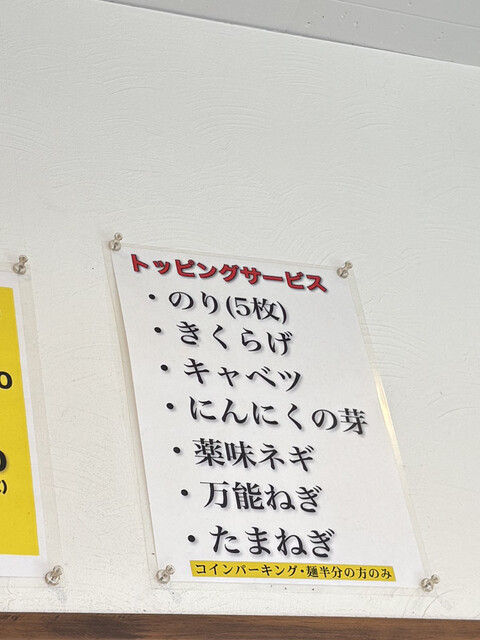 トッピングサービス
・のり(5枚)
・きくらげ
・キャベツ
・にんにくの芽
・薬味ネギ
・万能ねぎ
・たまねぎ
コインパーキング・麺半分の方のみ